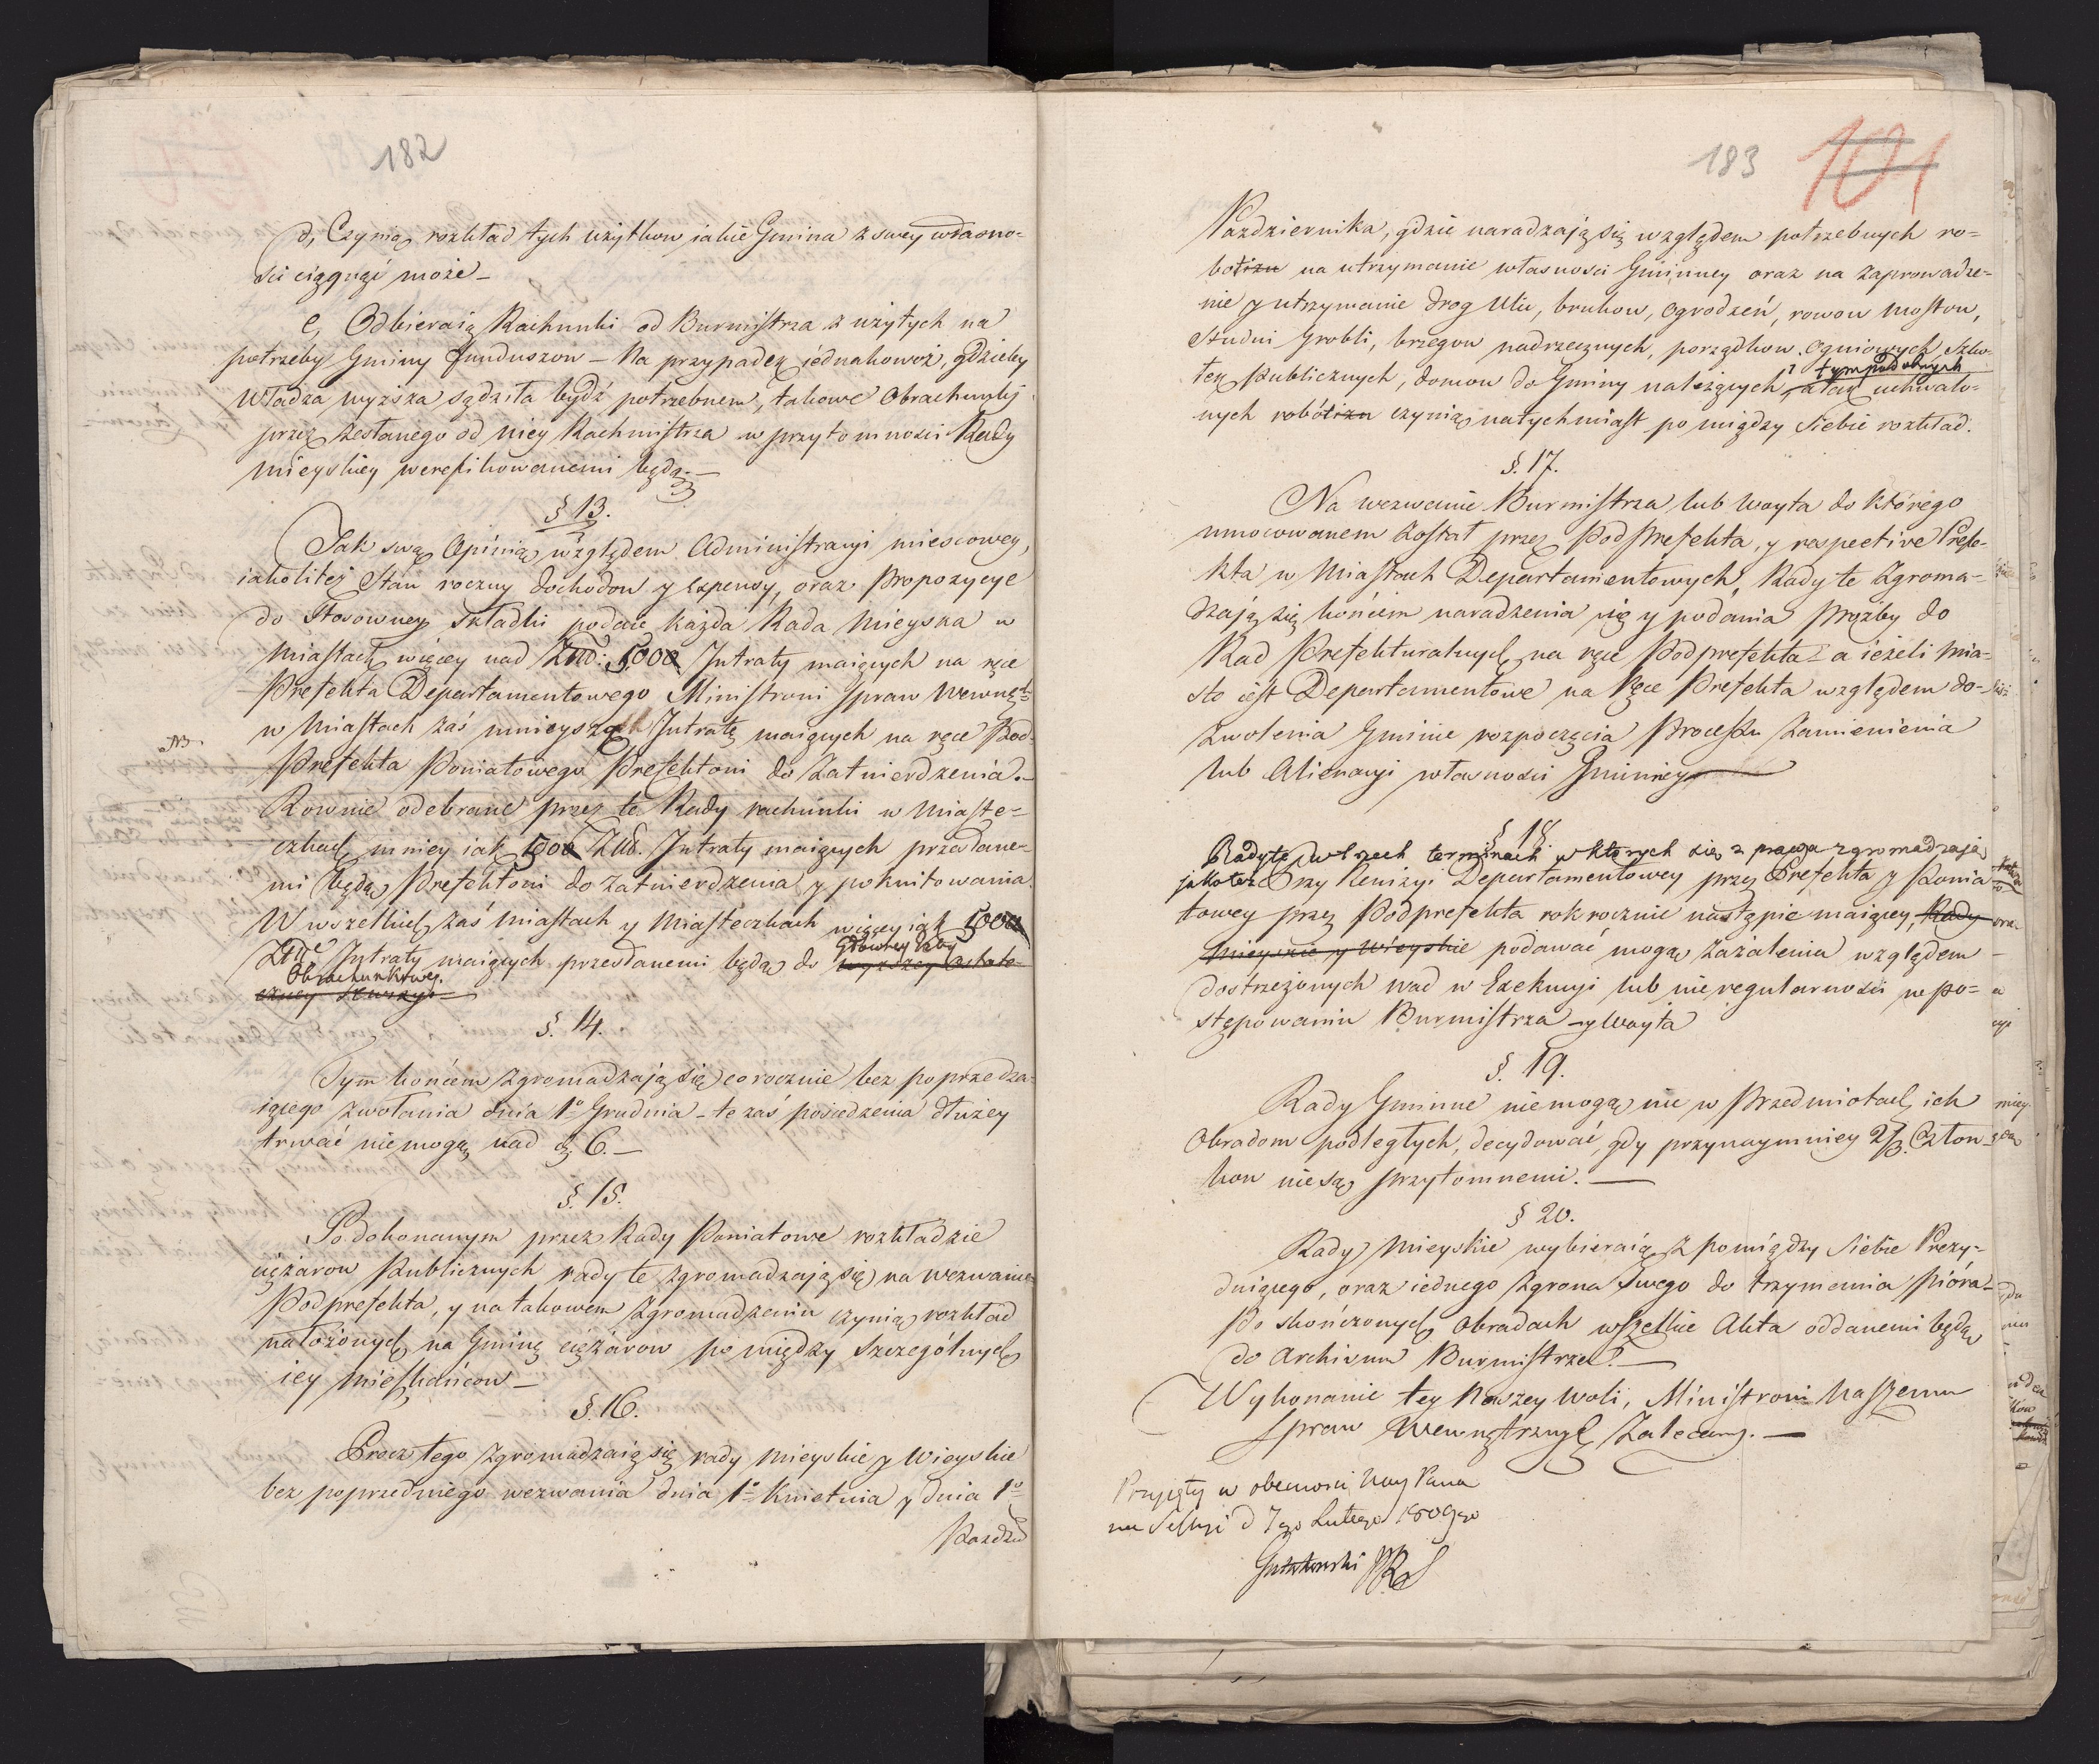 182
d, Czynią rozkład tych użytkow jakie Gmina z swey własno-
ści ciągnąć może –
e, Odbieraią Rachunki od Burmistrza z użytych na
potrzeby Gminy funduszow – Na przypadek jednakowoż, gdzieby
Władza wyższa sądziła bydź potrzebnem, takowe Obrachunki
przez zesłanego od niey Rachmistrza w przytomności Rady
mieyskiey werefikowanemi będą. –
§ 13.
Jak swą Opinią względem Administracyi miescowey,
iakoliteż Stan roczny dochodow y Expensy, oraz Propozycye
do Stosowney Składki podaie każda Rada Mieyska w
Miastach więcey nad Złłd: 5000 Intraty maiących na ręce
Prefekta Departamentowego Ministrowi Spraw Wewnętr:
w Miastach zaś mnieyszą Intratę maiących na ręce Pod-
Prefekta Powiatowego Prefektowi do Zatwierdzenia. –
Rownie odebrane przez te Rady rachunki w Miaste-
czkach mniey iak 5000 Złłd. Intraty maiących przesłane-
mi będą Prefektowi do Zatwierdzenia y pokwitowania.
W wszetkich zaś Miastach y Miasteczkach więcey iak 5000
Głowney Izby
Złłd Intraty maiących przesłanemi będą do wyższey Ostate-
Obrachunkowey.
czney Rewizyi
§. 14.
Tym końcem zgromadzają się corocznie bez poprzedza-
iącego zwołania dnia 1° Grudnia – te zaś posiedzenia dłużey
trwać niemogą nad d. 6. –
§. 15.
Po dokonanym przez Rady Powiatowe rozkładzie
ciężarow Publicznych rady te zgromadzają się na wezwanie
Podprefekta, y na takowem Zgromadzeniu czynią rozkład
nałożonych na Gminę ciężarow pomiędzy Szczególnych
iey Mieszkańcow –
§. 16.
Procz tego zgromadzaią się rady Mieyskie y Wieyskie
bez poprzedniego wezwania dnia 1° Kwietnia y dnia 1°
Pazdzie
183 101
Pazdziernika, gdzie naradzają się względem potrzebnych ro-
botizn na utrzymanie własnosci Gminney oraz na zaprowadze-
nie y utrzymanie drog Ulic, brukow, ogrodzeń, rowow mostow,
Studni Grobli, brzegow nadrzecznych, porządkow ogniowych, Szko-
i tym podobnych
łey Publicznych, domow do Gminy należących, a tak uchwalo-
nych robótizn czynią natychmiast pomiędzy Siebie rozkład.
§. 17.
Na wezwanie Burmistrza lub Woyta do którego
umocowanem został przez PodPrefekta, y respective Prefe-
kta w Miastach Departamentowych, Rady te zgroma-
dzają się końcem naradzenia się y podania Prozby do
Rad Prefekturalnych na ręce Podprefekta a ieżeli Mia-
sto iest Departamentowe na Ręce Prefekta względem do-
zwolenia Gminie rozpoczęcia Processu Zamienienia
lub Alienacyi własności Gminney
§ 18.
Rady te w trzech terminach w ktorych się z prawa zgromadzają
jakoteż Przy Rewizyi Departamentowey przez Prefekta y Powia-
towey przez Podprefekta rok rocznie nastąpić maiącey, Rady
Mieyskie y Wieyskie podawać mogą zażalenia względem
dostrzeżonych wad w Exekucyi lub nieregularności w po-
stępowaniu Burmistrza y Woyta
§. 19.
Rady Gminne niemogą nic w Przedmiotach ich
Obradom podległych, decydować, gdy przynaymniey 2/3. Człon-
kow niesą przytomnemi. –
§ 20.
Rady Mieyskie wybieraią z pomiędzy Siebie Prezy-
duiącego, oraz iednego zgrona Swego do trzymania pióra –
Po skończonych obradach wszelkie Akta oddanemi będą
do Archivum Burmistrza. –
Wykonanie tey Naszey Woli, Ministrowi Naszemu
Spraw Wewnętrznych Zalecamy. –
Przyięty w obecności Nay Pana
na Sessyi d 7go Lutego 1809go
Gutakowski PRS